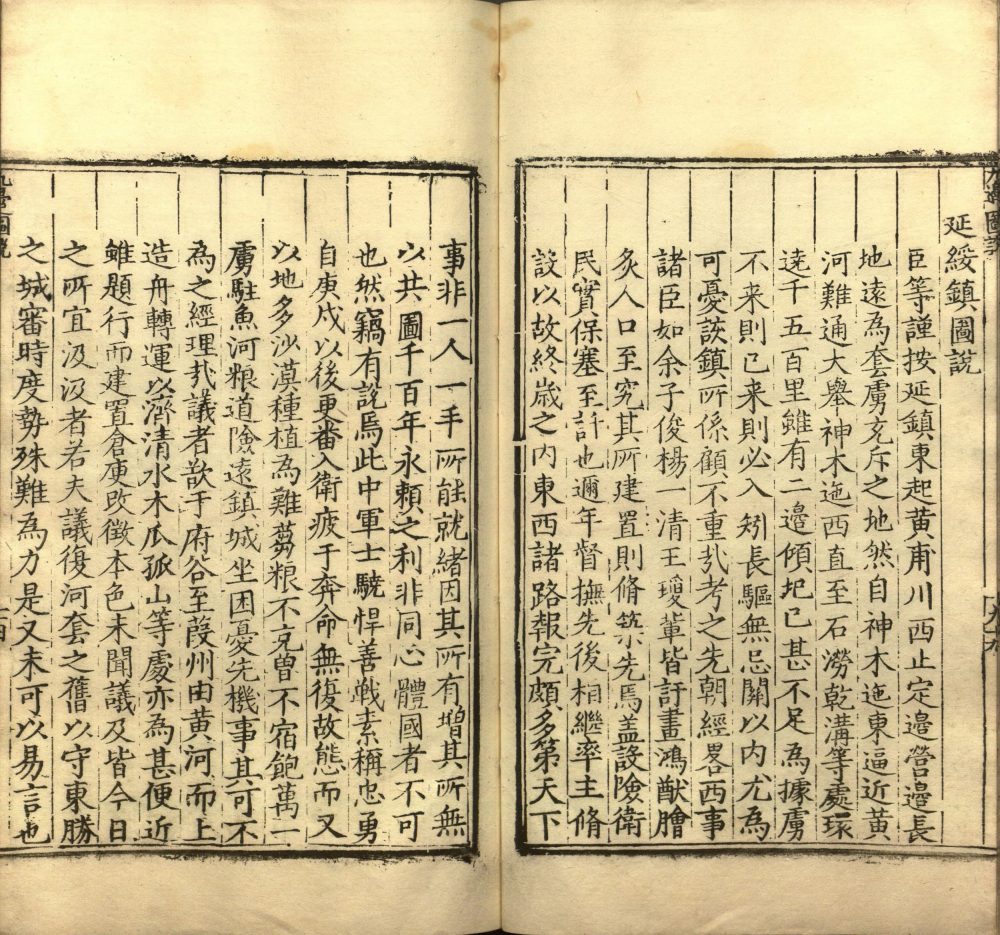 延綏鎮圖說
臣等謹按延鎮東起黃甫川西止定邊營邊長
地遠為套虜充斥之地然自神木迤東逼近黃
河難通大舉神木迤西直至石澇乾溝等處環
遶千五百里雖有二邊傾圮已甚不足為據虜
不来則已来則必入矧長驅無忌關以内尤為
可憂該鎮所係顧不重㢤考之先朝經畧西事
諸臣如余子俊楊一清王瓊軰皆訏畫鴻猷膾
炙人口至究其所建置則脩築先焉盖設險衛
民實保塞至計也邇年督撫先後相繼率主脩
設以故終歲之内東西諸路報完頗多第天下
事非一人一手所能就緒因其所有增其所無
以共圖千百年永頼之利非同心體國者不可
也然竊有說焉此中軍士驍悍善戰素稱忠勇
自庚戌以後更番入衛疲于奔命無復故態而又
以地多沙漠種植為難蒭粮不充曽不宿飽萬一
虜駐魚河粮道險遠鎮城坐困憂先機事其可不
為之經理㢤議者歆于府谷至葭州由黃河而上
造舟轉運以濟清水木瓜孤山等處亦為甚便近
雖題行而建置倉庾改徵本色未聞議及皆今日
之所宜汲汲者若夫議復河套之舊以守東勝
之城審時度勢殊難為力是又未可以易言也